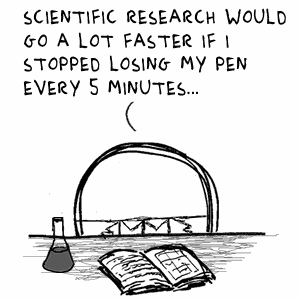 SCIENTIFIC RESEARCH WOULD
GO A LOT FASTER IF I
STOPPED LOSING MY PEN
EVERY 5 MINUTES...